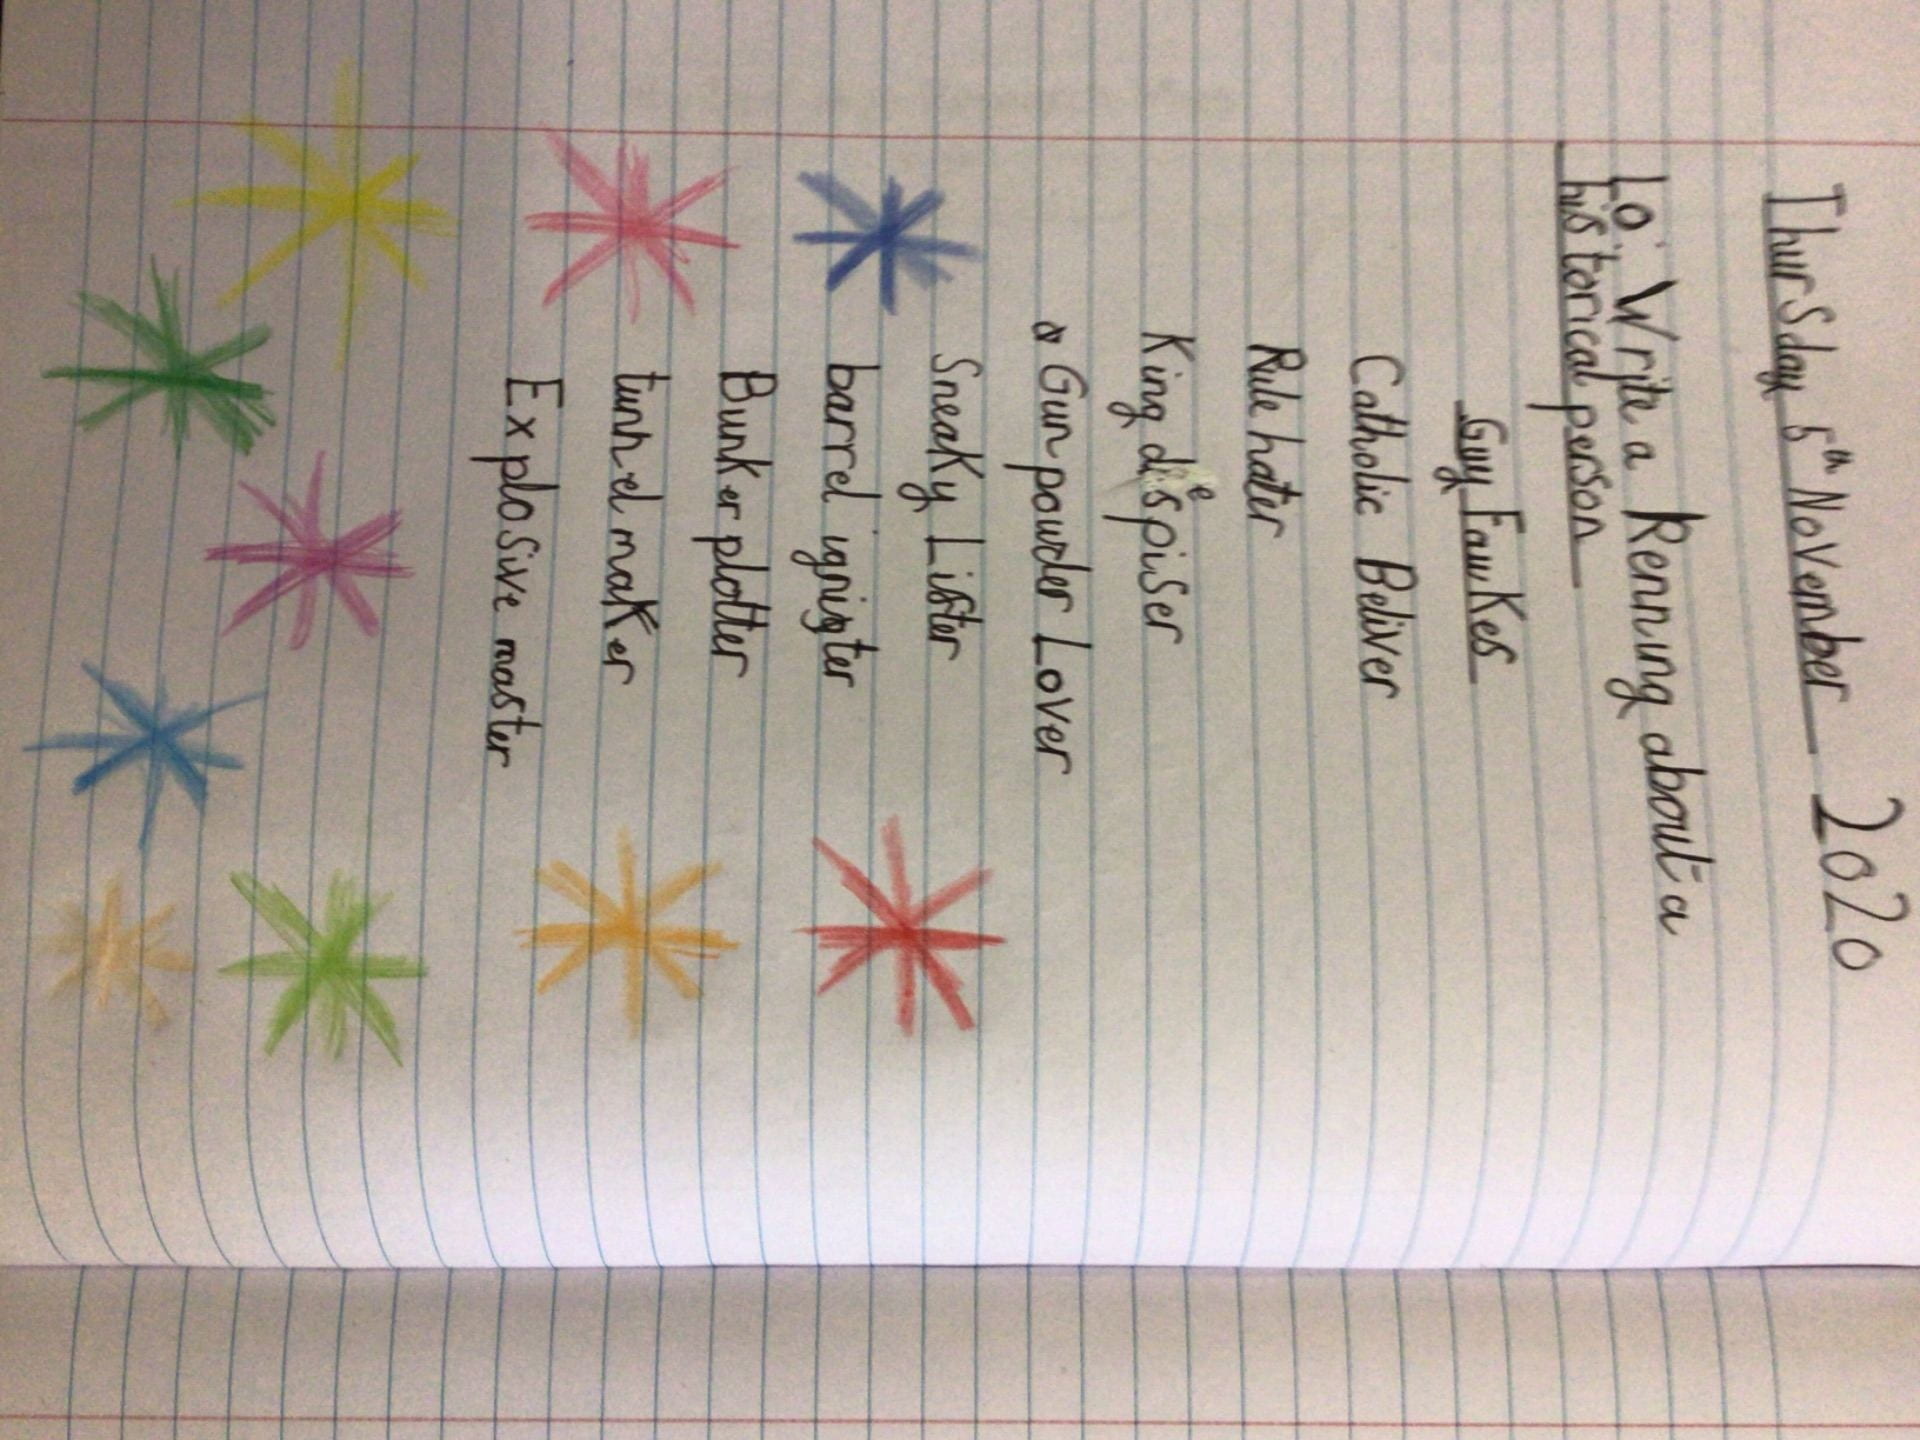 Thursday 5th November 2020
Lo: Write a Kenning about a
historical person
Guy Fawkes
Catholic Beliver
Rule hater
King despiser
Gunpowder Lover
Sneaky Lister
barrel igniter
Bunker plotter
tunnel maker
Explosive master